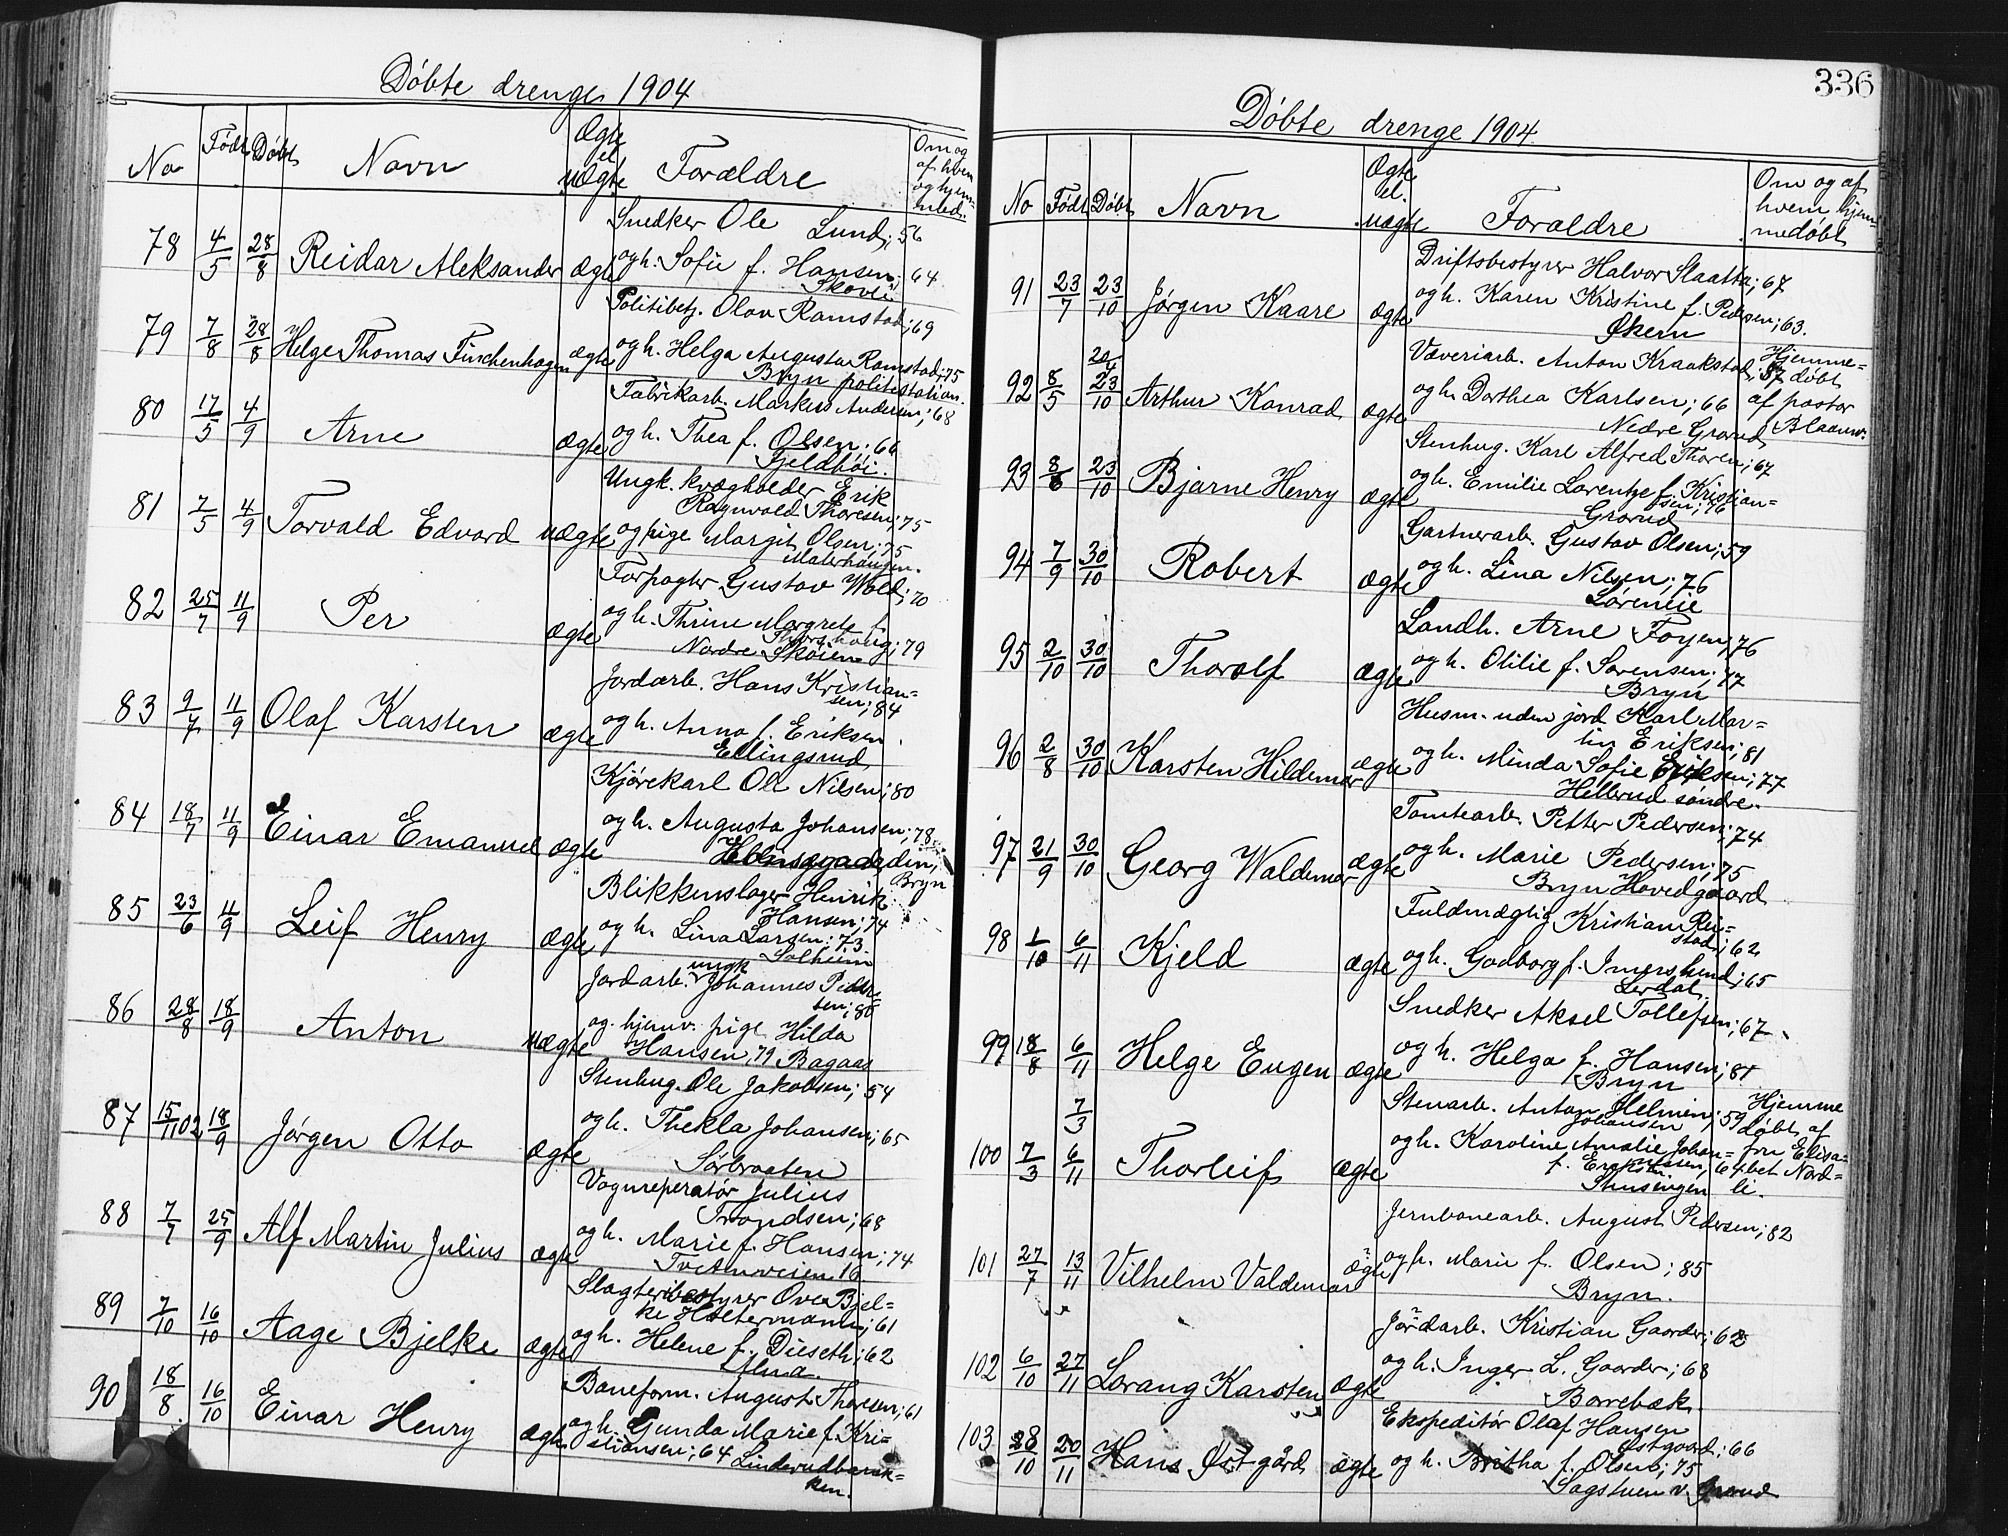 Døbte drenge 1904
No Født Døbt Navn Ægte el uægte Forældre Om og af hvem og hjemmed.
Snedker Ole Lund; 56
78 4/5 28/8 Reidar Aleksander Ægte og h. Sofie f. Hansen; 64
Skovli
Politibetj. Olav Ramstad; 69
79 7/8 28/8 Helge Thomas Finchenhagen ægte og h. Helga Augusta Ramstad; 75
Bryn politistation.
Fabrikarb. Markus Andersen; 68
80 17/5 4/9 Arne Ægte og h. Thea f. Olsen; 66
Fjeldhøi.
Ungk. kvægholder Erik
Ragnvald Thoresen; 75
81 7/5 4/9 Torvald Edvard uægte og pige Margit Olsen; 75
Malerhaugen.
Forpagter Gustav Wold; 70
82 25/7 11/9 Per Ægte og h. Thrine Margrete f.
Thorshaug; 79
Nordre Skøien
Jordarb. Hans Kristian=
sen; 84
83 9/7 11/9 Olaf Karsten ægte og h. Anna f. Eriksen.
Ellingsrud
Kjørekarl Ole Nilsen; 80
84 18/7 11/9 Einar Emanuel ægte og h. Augusta Johansen; 78
Bryn
Blikkenslager Henrik
Hansen; 74
85 23/6 11/9 Leif Henry ægte og h. Lina Larsen; 73
Solheim
Jordarb. ungk Johannes Peder=
sen; 80
86 28/8 18/9 Anton uægte og hjemv. pige Hilda
Hansen, 79 Bagaas
Stenhug. Ole Jakobsen; 54
87 15/11 02 18/9 Jørgen Otto ægte og h. Thekla Johansen; 65
Sørbraaten
Vognreperatør Julius
Trondsen; 68
88 7/7 25/9 Alf Martin Julius ægte og h. Marie f. Hansen; 74
Tvetenveien 16
Slagteribestyrer Ove Bjel=
ke Holtermann; 61
89 7/10 16/10 Aage Bjelke ægte og h. Helene f. Dieseth; 62
Alna.
Baneform. August Thoresen; 61
90 18/8 16/10 Einar Henry ægte og h. Gunda Marie f. Kri=
stiansen; 64 Linderudbakk=
ken.
336
Døbte drenge 1904.
No Født Døbt Navn Ægte el. uægte Forældre Om og af hvem hjem= medøbt
Driftsbestyrer Halvor Slaatta; 67
91 23/7 23/10 Jørgen Kaare ægte og h. Karen Kristine f. Pedersen; 63.
Økern
Væveriarb. Anton Kraakstad; 87 Hjemme=
92 8/5 20/4 23/10 Arthur Konrad ægte og h. Dorthea Karlsen; 66 døbt af pastor
Nedre Grorud Blaauw.
Stenhug. Karl Alfred Thoren; 67
93 8/6 23/10 Bjarne Henry ægte og h. Emilie Lorentze f. Kristian=
sen; 76
Grorud
Gartnerarb. Gustav Olsen; 59
94 7/9 30/10 Robert ægte og h. Lina Nilsen; 76
Løreneie
Landh. Arne Foyen; 76
95 2/10 30/10 Thorolf ægte og h. Otilie f. Sørensen; 77
Bryn
Husm. uden jord Karl Mar=
tin Eriksen; 81
96 2/8 30/10 Karsten Hildemar ægte og h. Minda Sofie Eriksen; 77
Hellerud søndre.
Tomtearb. Petter Pedersen; 74
97 21/9 30/10 Georg Waldemar ægte og h. Marie Pedersen; 75
Bryn Hovedgaard
Fuldmægtig Kristian Rei=
stad; 62
98 1/10 6/11 Kjeld ægte og h. Godborg f. Imerslund; 65
Lerdal.
Snedker Aksel Tollefsen; 67
99 18/8 6/11 Helge Eugen ægte og h. Helga f. Hansen; 81
Bryn
Stenarb. Anton Helmin Johansen; 59 Hjemme
7/3 døbt af
100 7/3 6/11 Thorleif ægte og h. Karoline Amalie Johan= fru Elisa=
f. Eriksen, 64 bet Nord=
Stusengen li.
Jernbanearb. August Pedersen; 82
101 27/7 13/11 Vilhelm Valdemar ægte og h. Marie f. Olsen; 85
Bryn.
Jordarb. Kristian Gaarder; 62
102 6/10 27/11 Lorang Karsten ægte og h. Inger L. Gaarder; 68
Borrebæk.
Ekspeditør Olaf Hansen
Østgaard; 66
103 28/10 20/11 Hans Østgård ægte og h. Britha f. Olsen; 75
Sagstuen v. Grorud